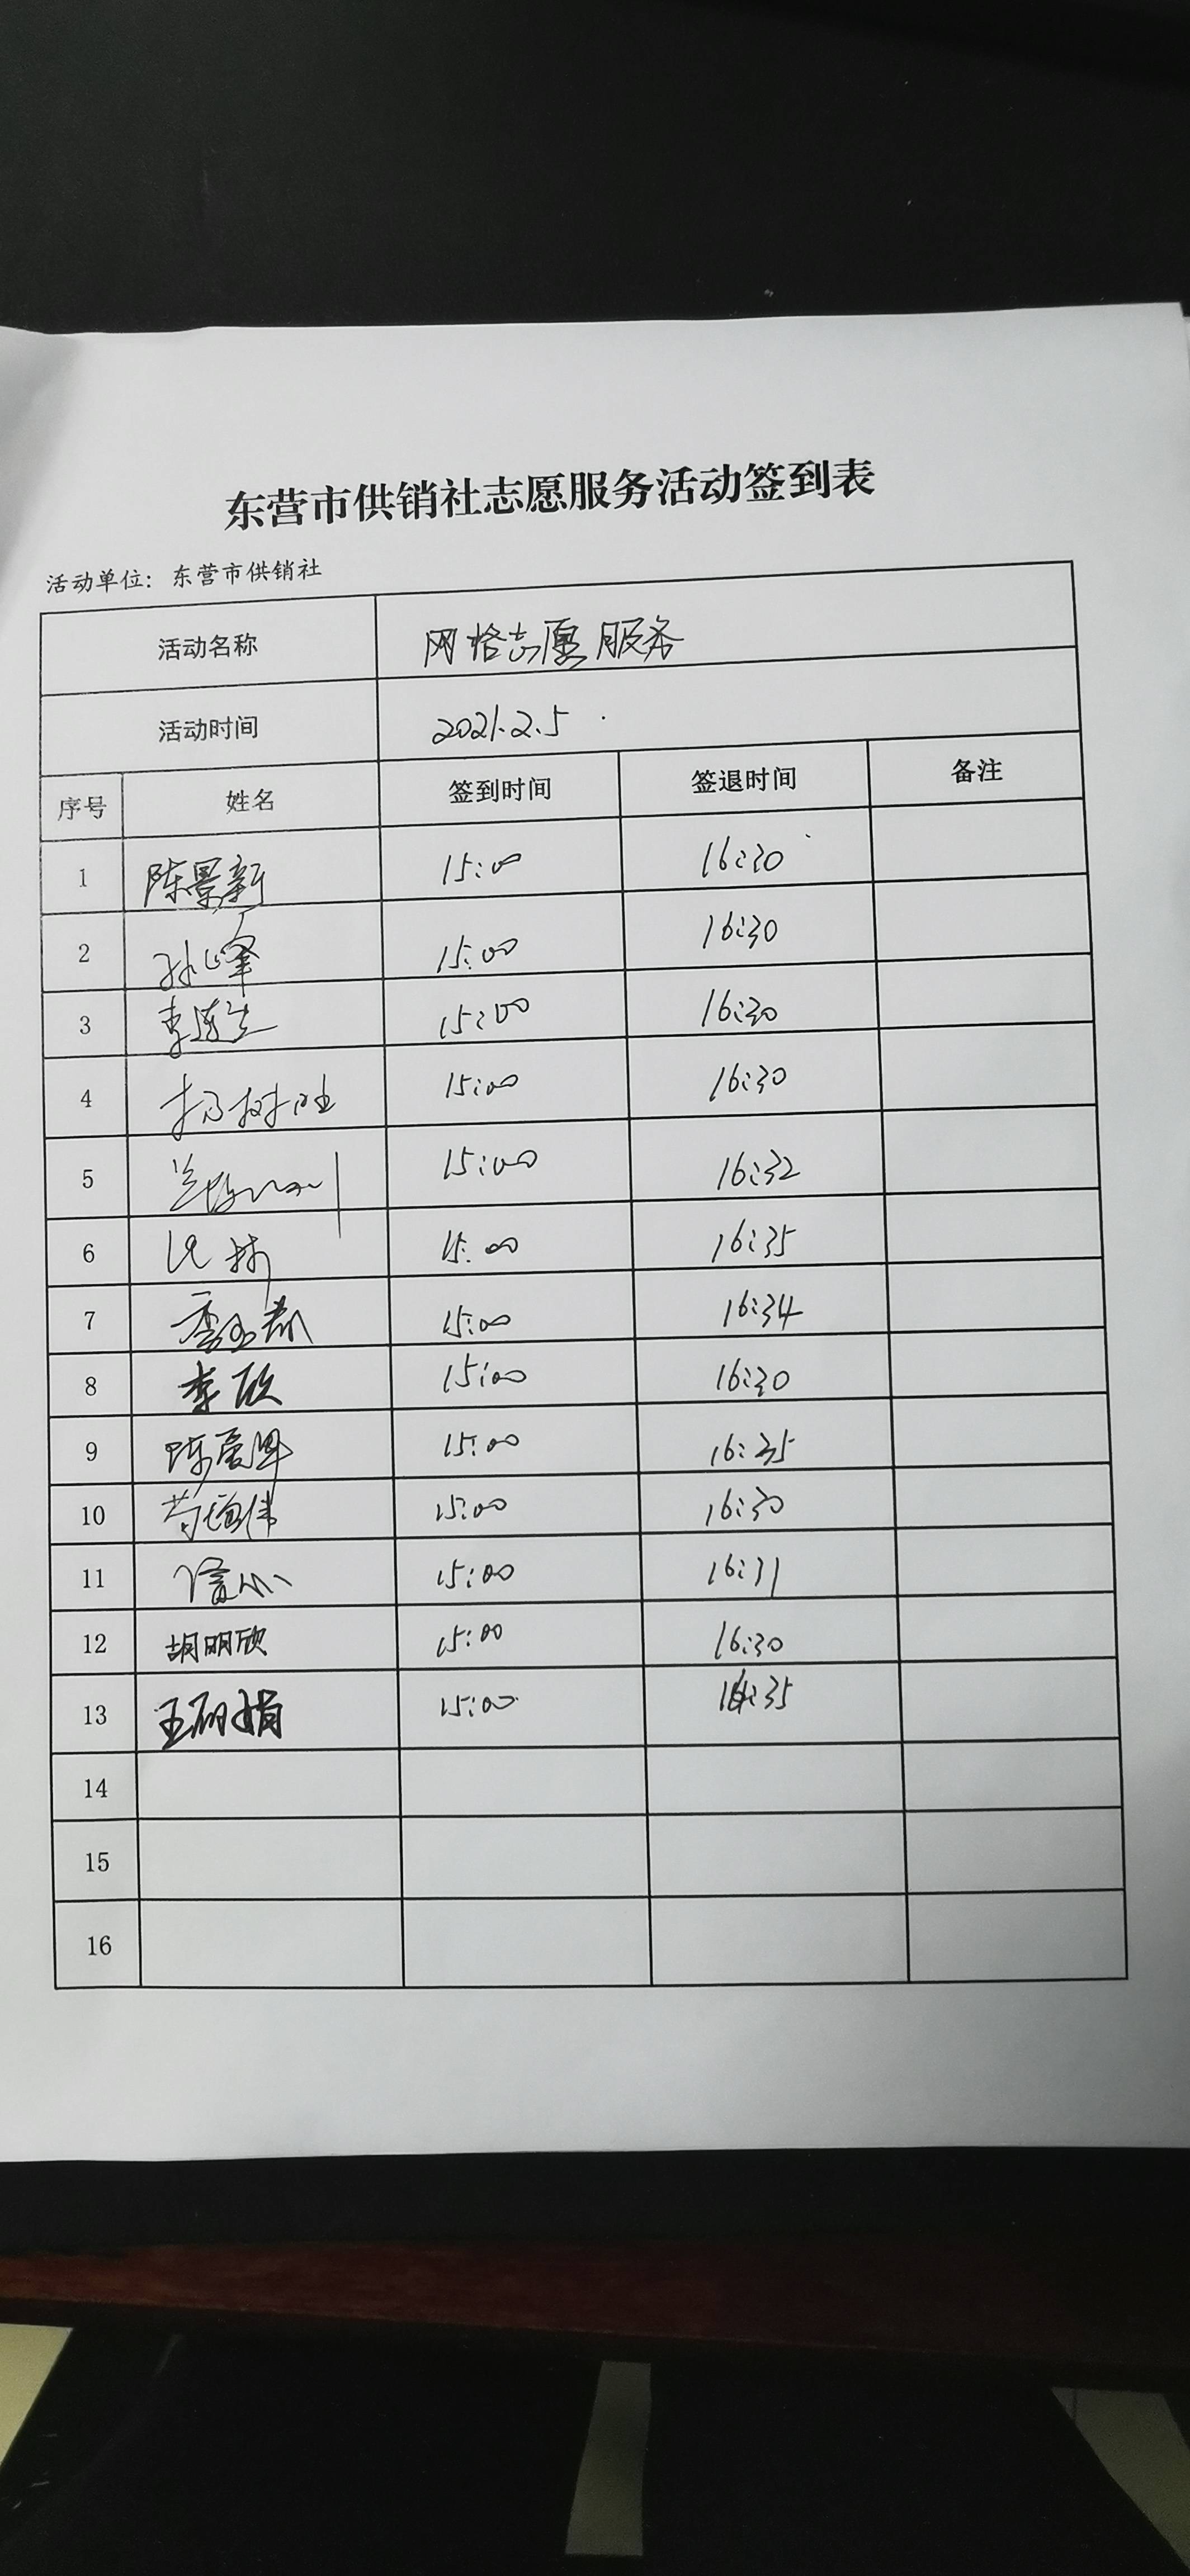 东营市供销社志愿服务活动签到表
活动单位：东营市供销社
活动名称 网格志愿服务
活动时间 2021.2.5
序号 姓名 签到时间 签退时间 备注
1 陈景新 15:00 16:30
2 孙峰 15:00 16:30
3 李连生 15:00 16:30
4 杨树旺 15:00 16:30
5 15:00 16:32
6 林 15:00 16:35
7 15:00 16:34
8 李欣 15:00 16:30
9 陈 15:00 16:35
10 伟 15:00 16:30
11 15:00 16:31
12 胡明欣 15:00 16:30
13 王丽娟 15:00 16:35
14
15
16